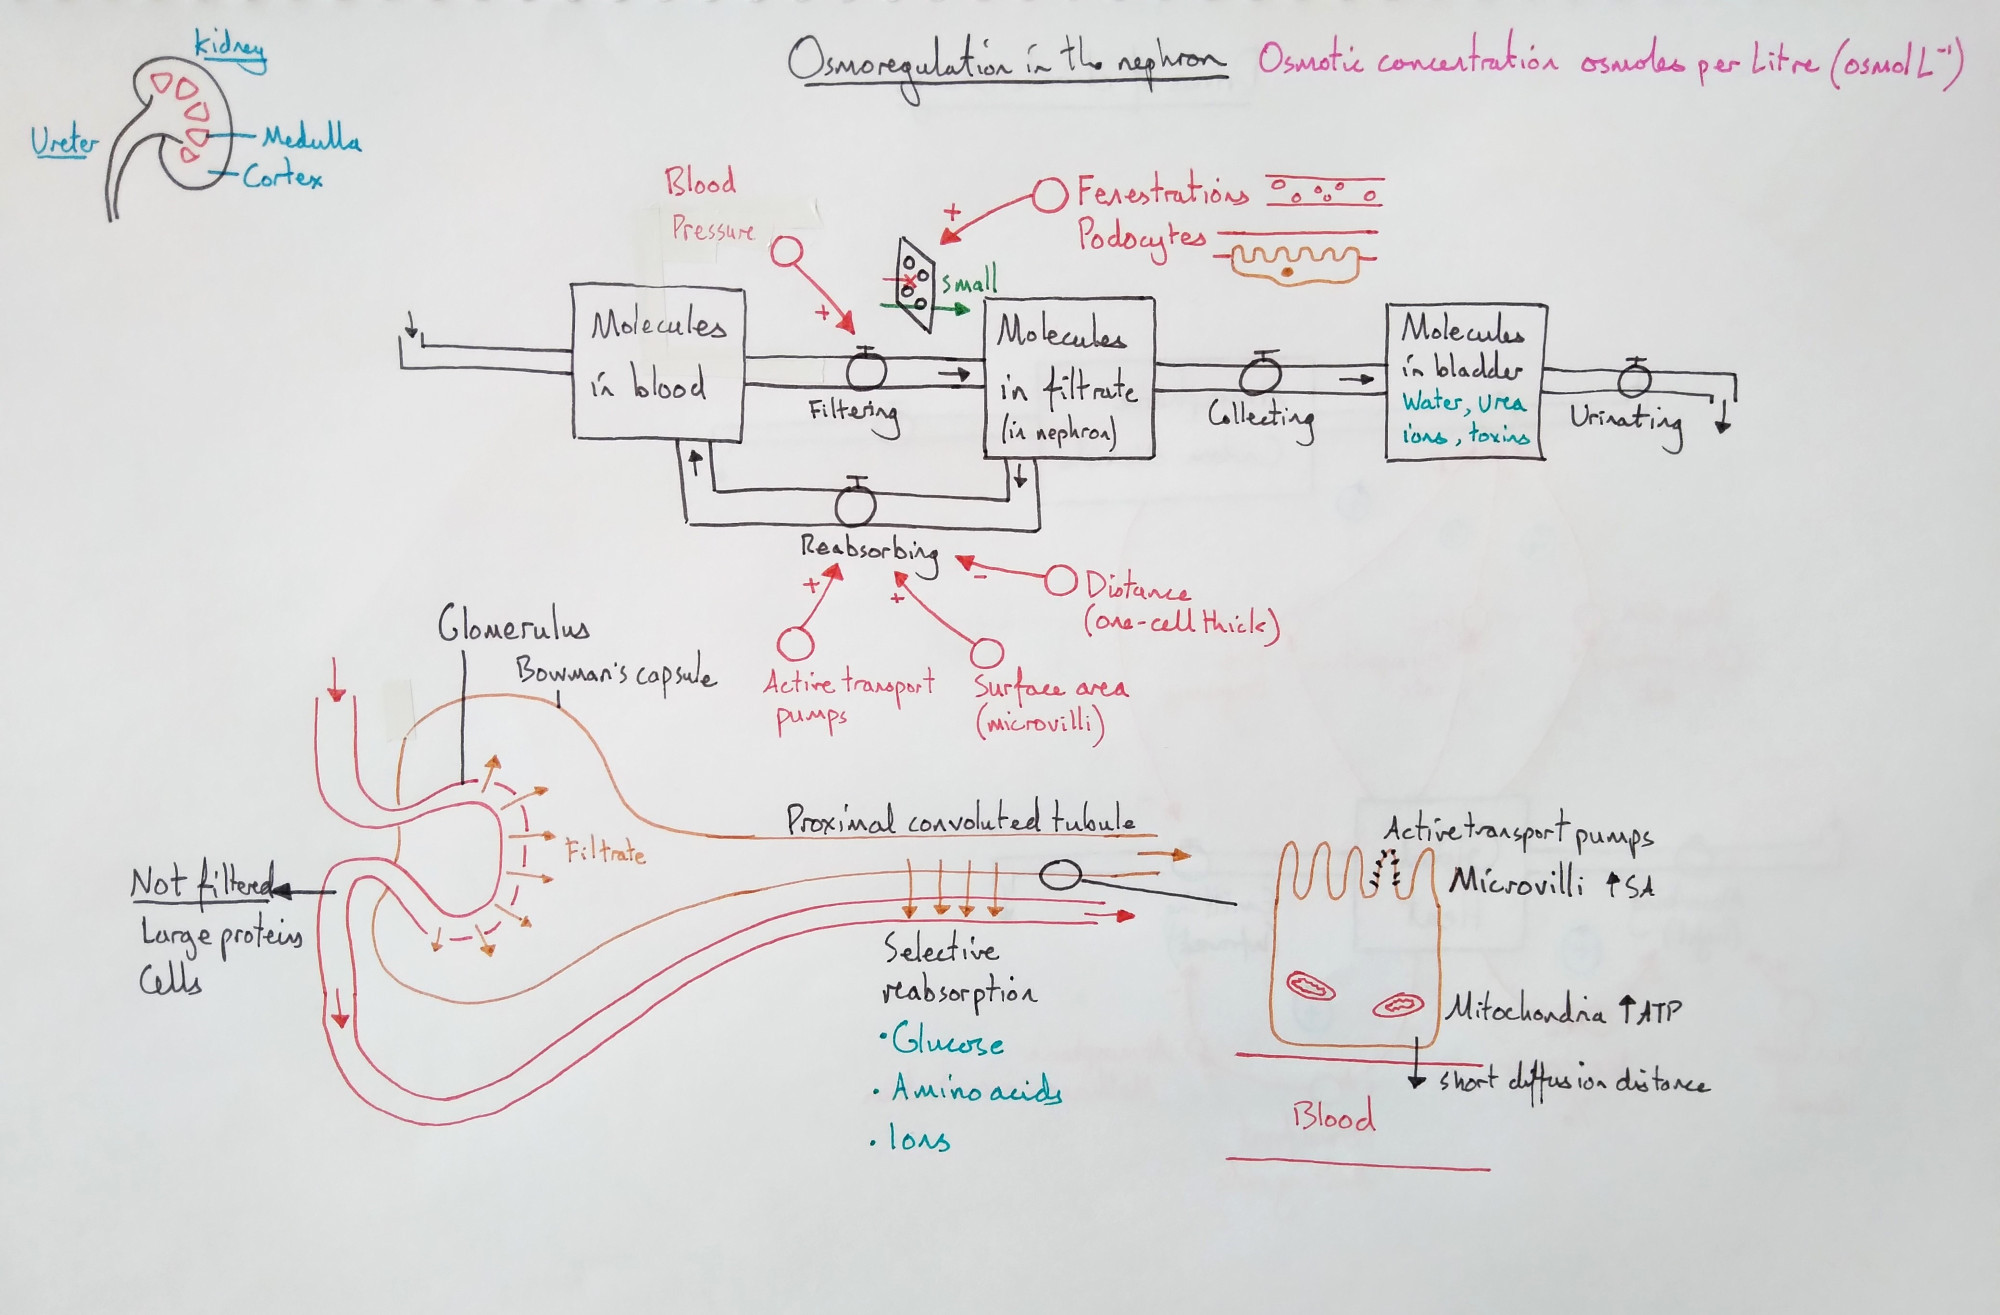 Osmoregulation in the nephron
Osmotic concentration osmoles per Litre (osmol L⁻¹)
Kidney
Ureter
Medulla
Cortex
Blood
Pressure
+
+
Fenestrations
Podocytes
small
Molecules
in blood
Filtering
Molecules
in filtrate
(in nephron)
Collecting
Molecules
in bladder
Water, urea
ions, toxins
Urinating
Reabsorbing
+
+
-
Distance
(one-cell thick)
Active transport
pumps
Surface area
(microvilli)
Glomerulus
Bowman's capsule
Filtrate
Not filtered
Large proteins
Cells
Proximal convoluted tubule
Selective
reabsorption
• Glucose
• Amino acids
• Ions
Active transport pumps
Microvilli ↑SA
Mitochondria ↑ATP
short diffusion distance
Blood